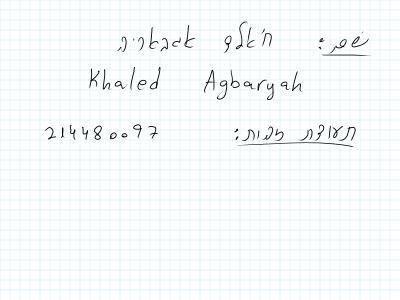 שם: ח'אלד אגבאריה
Khaled Agbaryah
תעודת זהות: 214480097